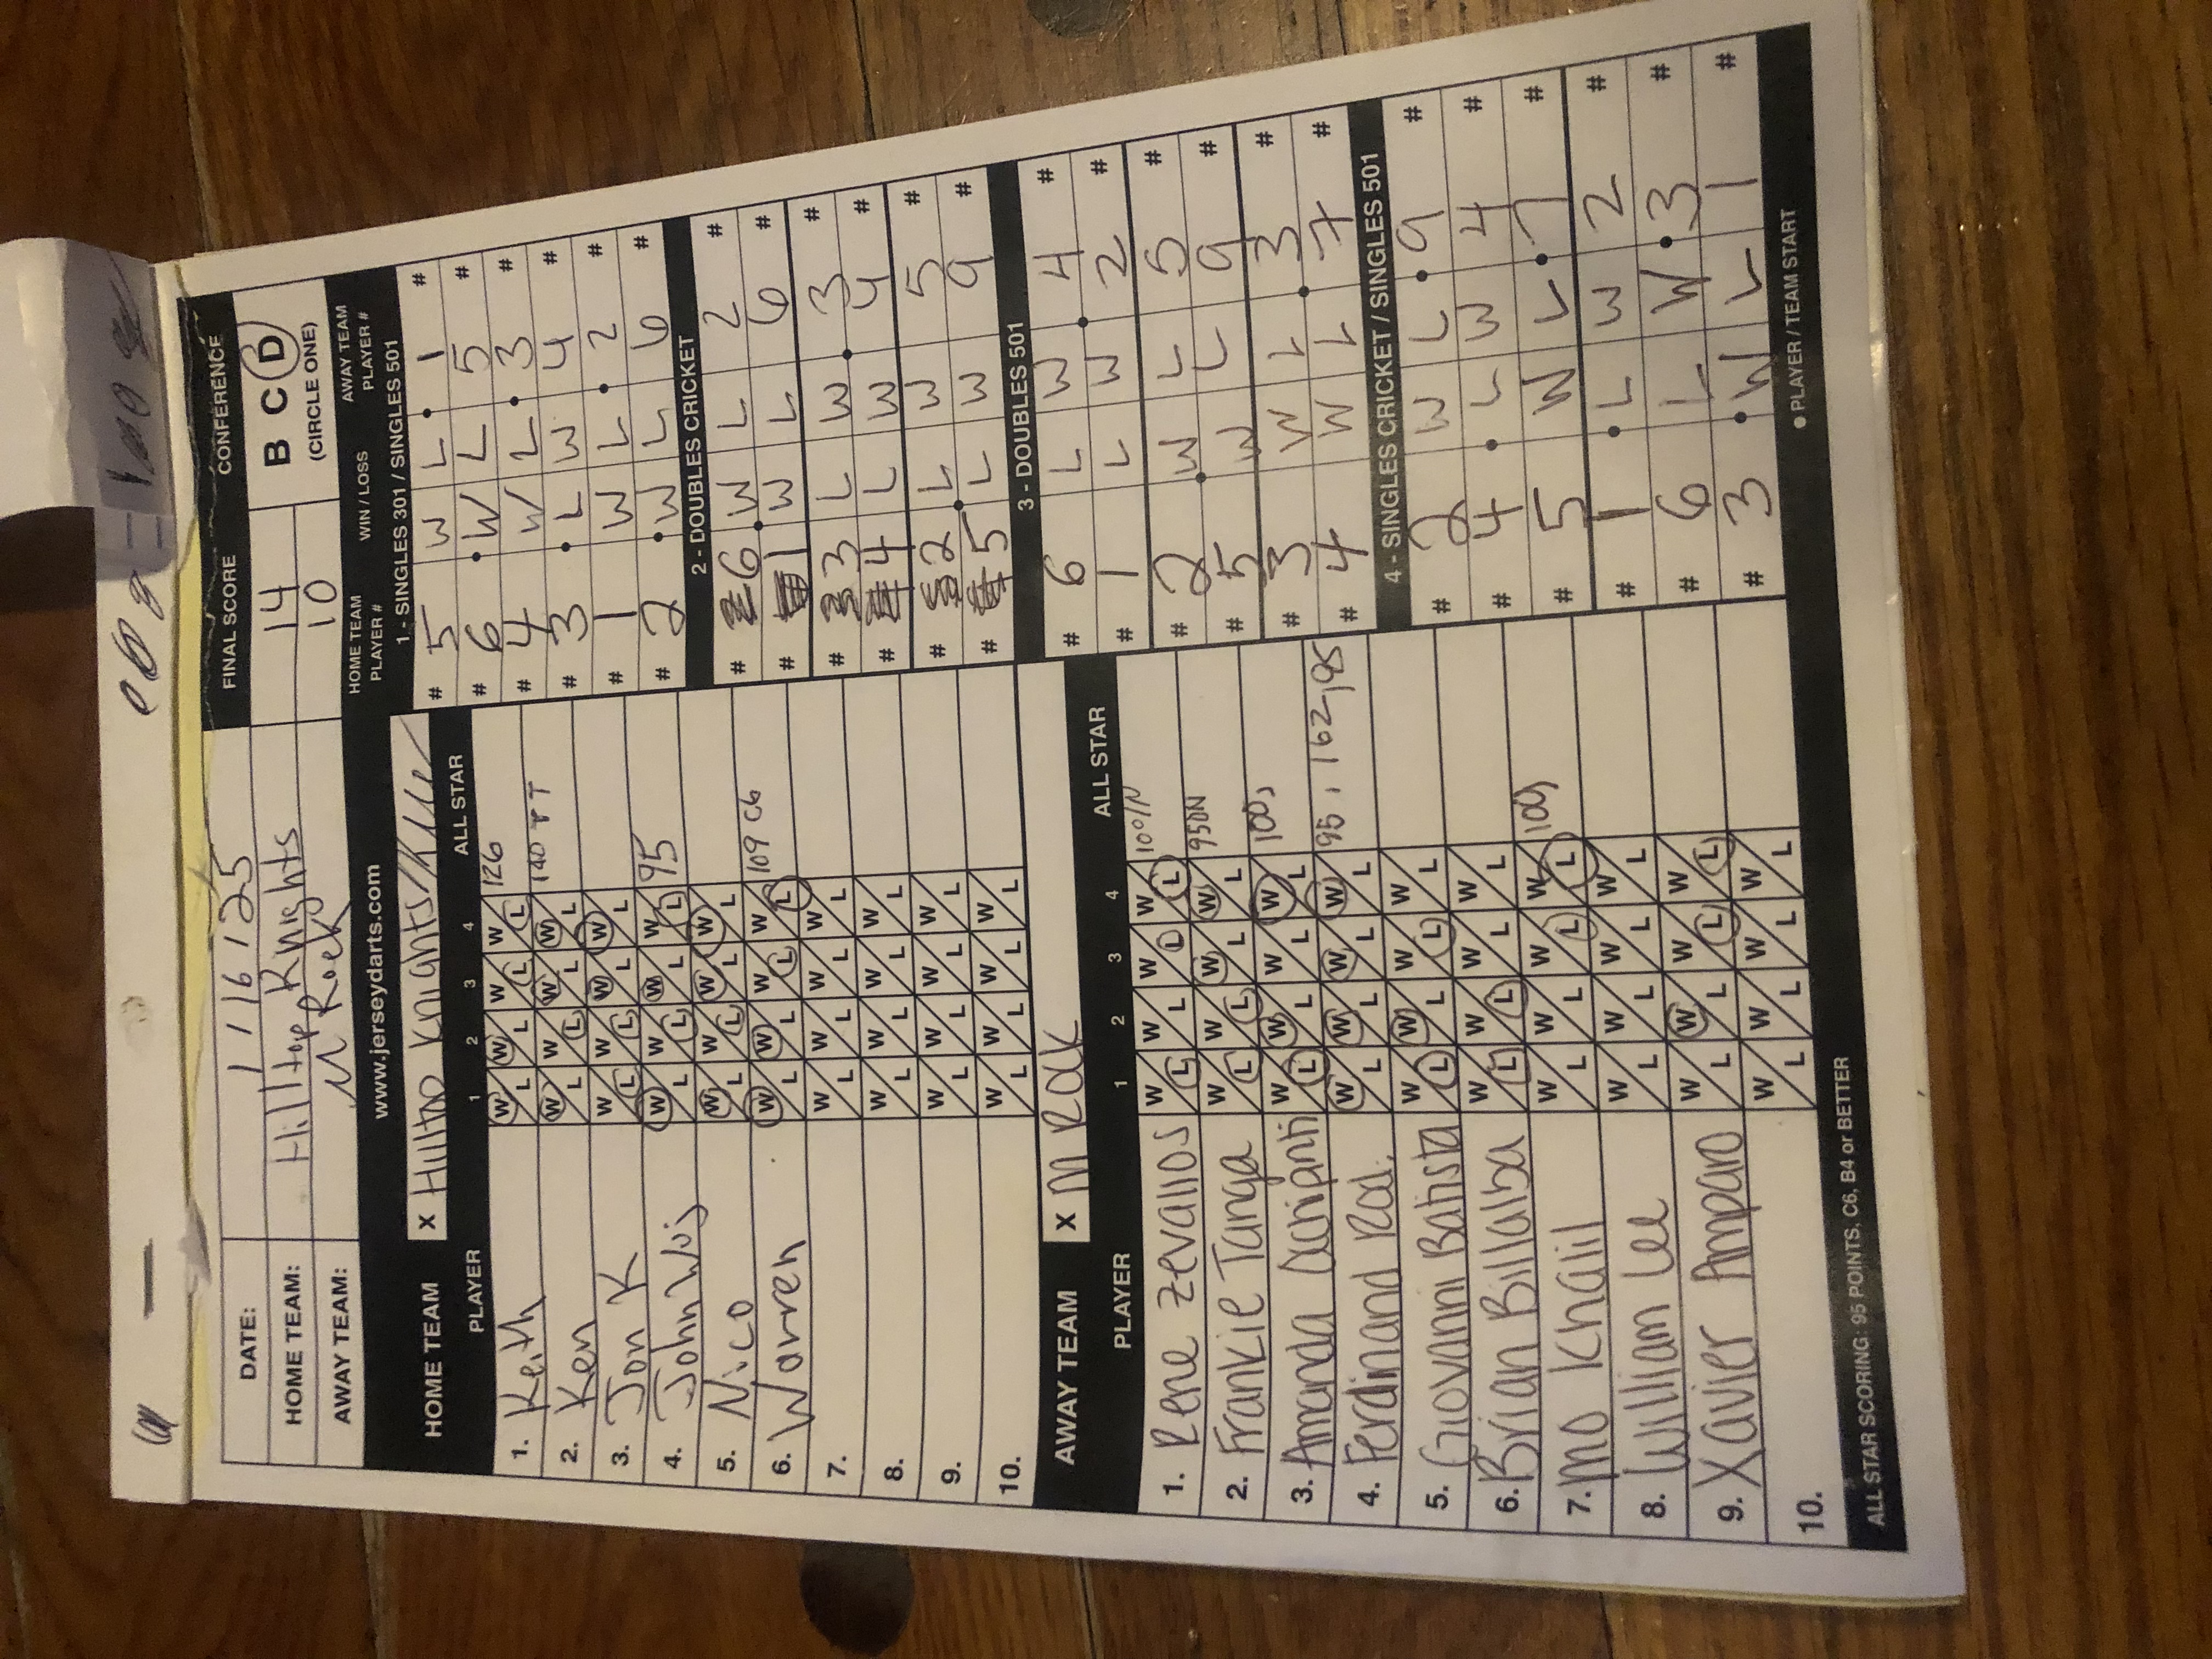 DATE: 1 / 16 / 25
HOME TEAM: Hilltop Knights
AWAY TEAM: M Rock
FINAL SCORE
14
10
CONFERENCE
B C D
(CIRCLE ONE)
www.jerseydarts.com
HOME TEAM X Hilltop Knights
PLAYER 1 2 3 4 ALL STAR
1. Keith W L W L W L W L 126
2. Ken W L W L W L W L 140 TT
3. Jon K W L W L W L W L
4. John Woj W L W L W L W L 95
5. Nico W L W L W L W L
6. Warren W L W L W L W L 109 C6
7. W L W L W L W L
8. W L W L W L W L
9. W L W L W L W L
10. W L W L W L W L
AWAY TEAM X M Rock
PLAYER 1 2 3 4 ALL STAR
1. Rene Zevallos W L W L W L W L 100IN
2. Frankie Tanga W L W L W L W L 95ON
3. Amanda W L W L W L W L 100,
4. Ferdinand Rod. W L W L W L W L 95, 162, 95
5. Giovanni Batista W L W L W L W L
6. Brian Billalba W L W L W L W L
7. Mo Khalil W L W L W L W L 100,
8. William Lee W L W L W L W L
9. Xavier Amparo W L W L W L W L
10. W L W L W L W L
ALL STAR SCORING: 95 POINTS, C6, B4 or BETTER
HOME TEAM PLAYER # WIN / LOSS AWAY TEAM PLAYER #
1 - SINGLES 301 / SINGLES 501
# 5 W L 1 #
# 6 W L 5 #
# 4 W L 3 #
# 3 L W 4 #
# 1 W L 2 #
# 2 W L 6 #
2 - DOUBLES CRICKET
# 6 W L 2 #
# 1 W L 6 #
# 3 L W 3 #
# 4 L W 4 #
# 2 L W 5 #
# 5 L W 9 #
3 - DOUBLES 501
# 6 L W 4 #
# 1 L W 2 #
# 2 W L 5 #
# 5 W L 9 #
# 3 W L 3 #
# 4 W L 7 #
4 - SINGLES CRICKET / SINGLES 501
# 2 W L 9 #
# 4 L W 4 #
# 5 W L 7 #
# 1 L W 2 #
# 6 L W 3 #
# 3 W L 1 #
● PLAYER / TEAM START